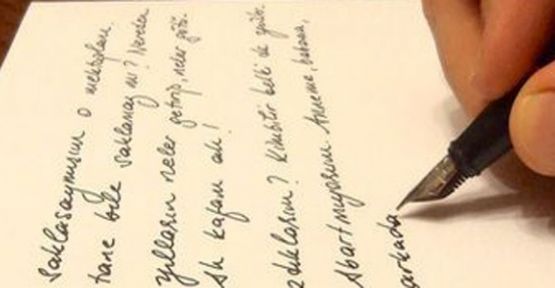 saklasaymışım o mektupları.
tane bile saklamaz mı? Nereden
yılların neler getirip, neler götü
Ah kafam ah!
dıklarım? Kimbilir belki de
abartmıyorum. Anneme, babama,
arkada